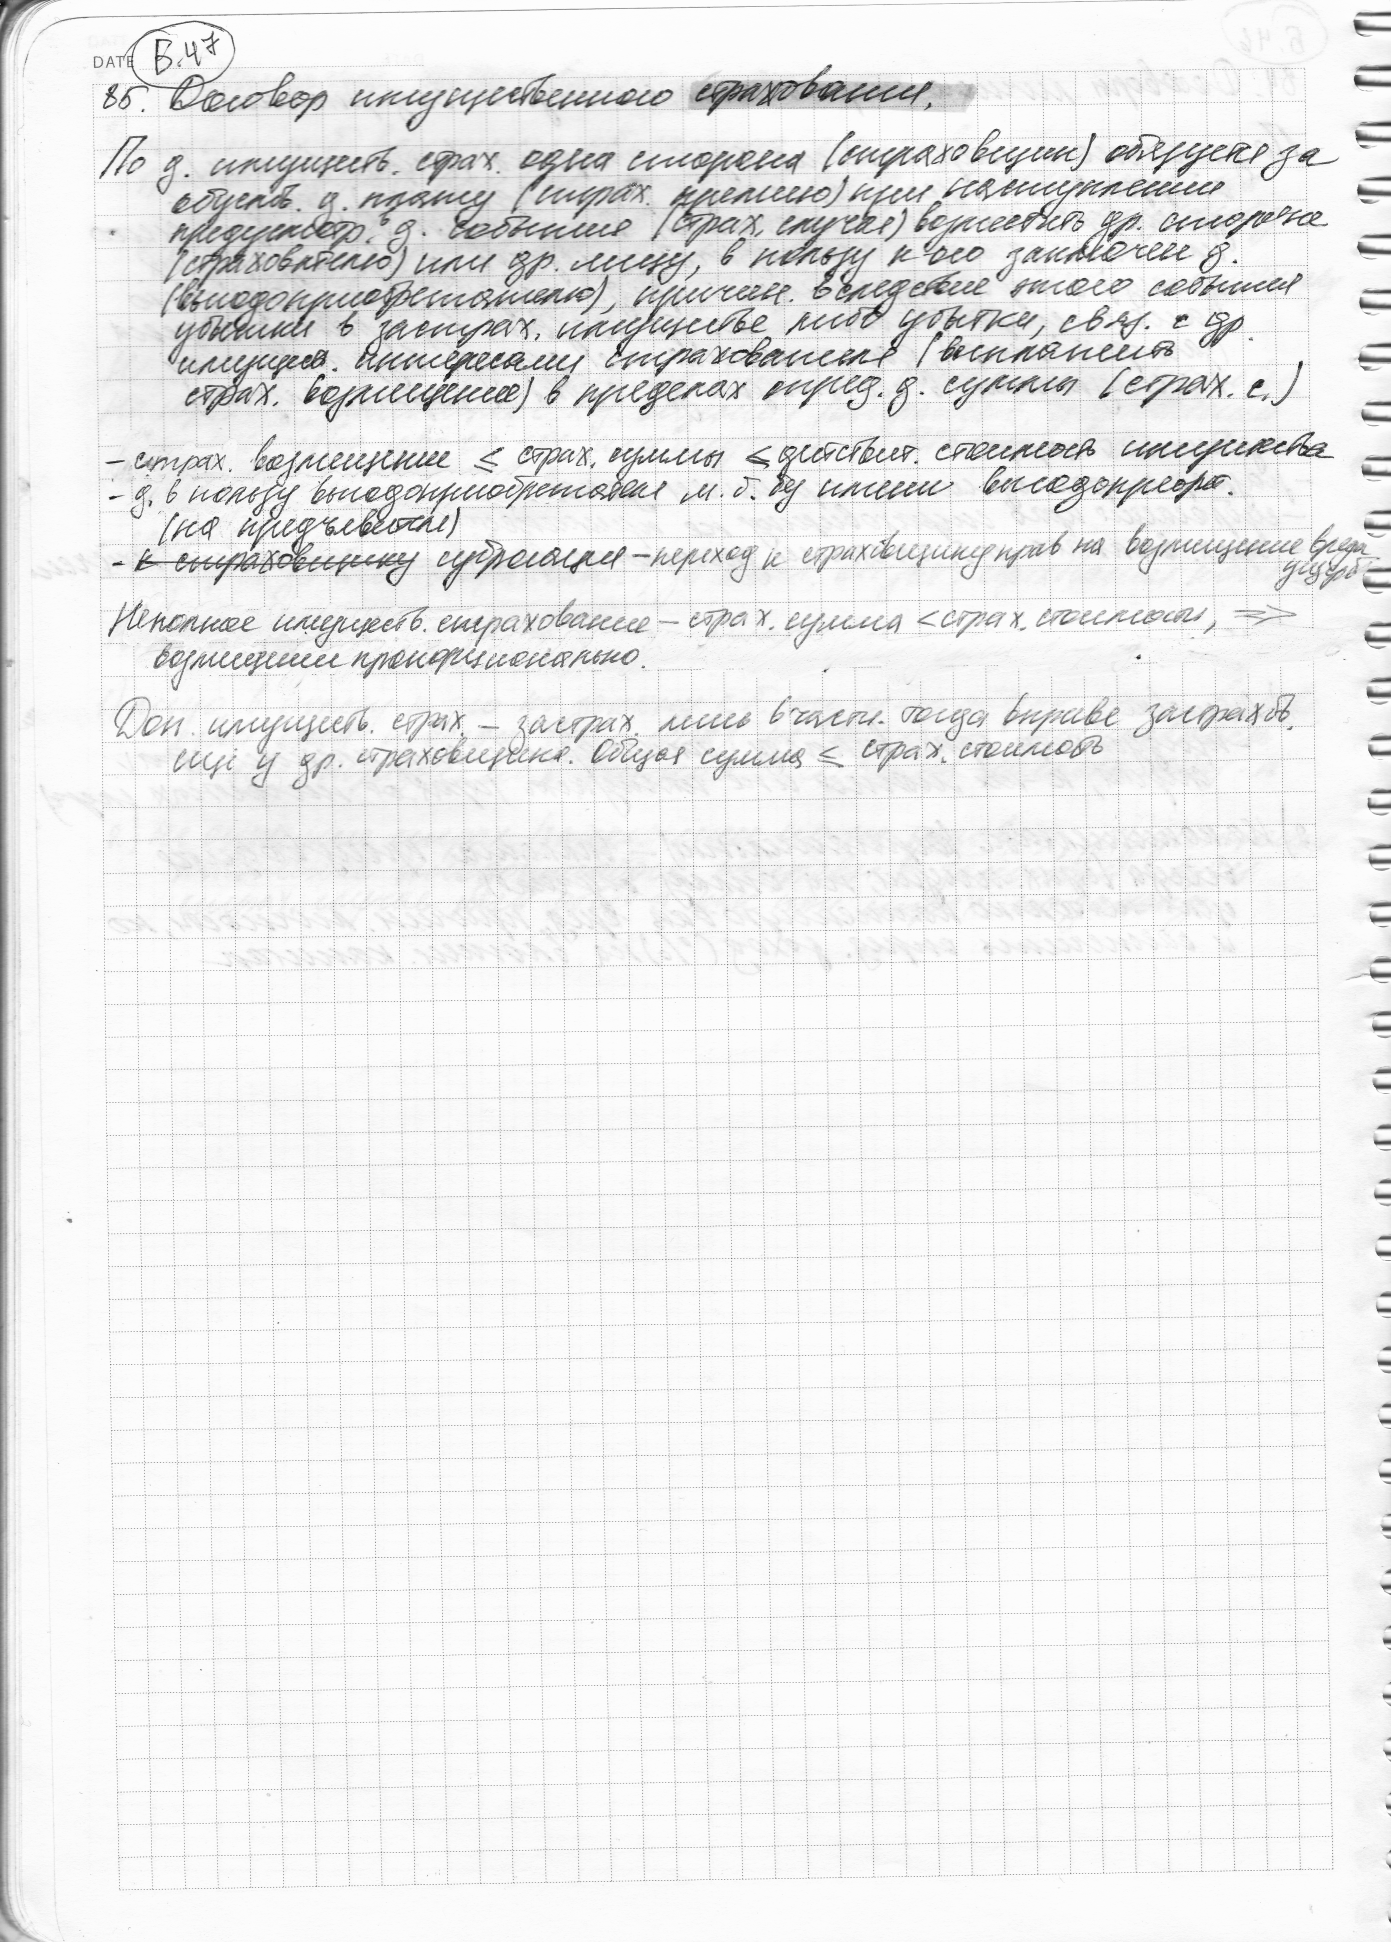 DATE Б.47
85. Договор имущественного страхования.
По д. имуществ. страх. одна сторона (страховщик) обязуется за
обуслов. д. плату (страх. премию) при наступлении
предусмотр. в д. события (страх. случая) возместить др. стороне
(страхователю) или др. лицу, в пользу к-ого заключен д.
(выгодоприобретателю), причин. вследствие этого события
убытки в застрах. имуществе либо убытки, связ. с др.
имущес. интересами страхователя (выплатить
страх. возмещение) в пределах опред. д. суммы (страх. с.)
- страх. возмещение ≤ страх. суммы ≤ действит. стоимость имущества
- д. в пользу выгодоприобретателя м. б. без имени выгодоприобрет.
(на предъявителя)
- к страховщику суброгация – переход к страховщику прав на возмещение вреда
ущерба
Неполное имуществ. страхование – страх. сумма < страх. стоимости, ⇒
возмещении пропорционально.
Доп. имуществ. страх. – застрах. лишь в части. тогда вправе застрахов.
ещё у др. страховщика. Общая сумма ≤ страх. стоимость